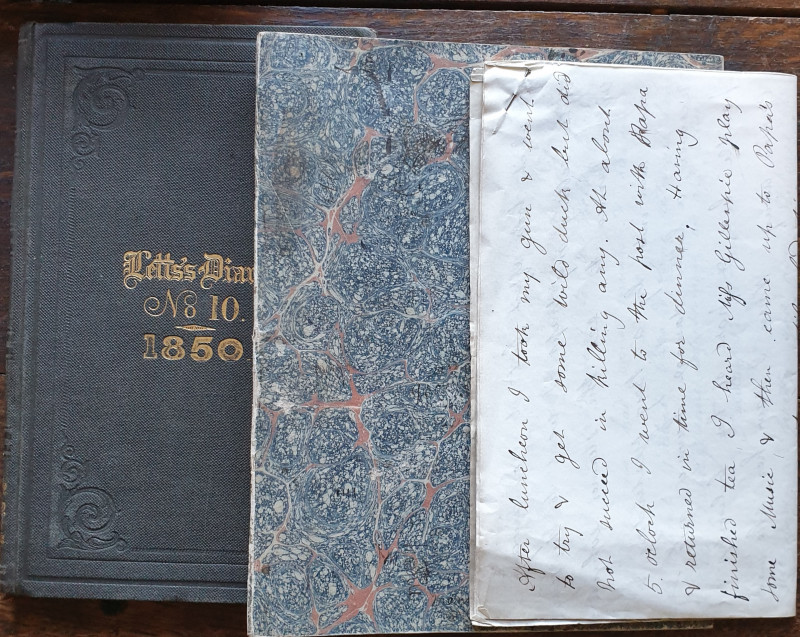 Letts's Diar
No 10.
1850.
After luncheon I took my gun & went
to try & get some wild duck but did
not succeed in killing any. At about
5. oclock I went to the post with Papa
& returned in time for dinner. Having
finished tea I heard Miss Gillespie play
some Music, & then came up to Papa's